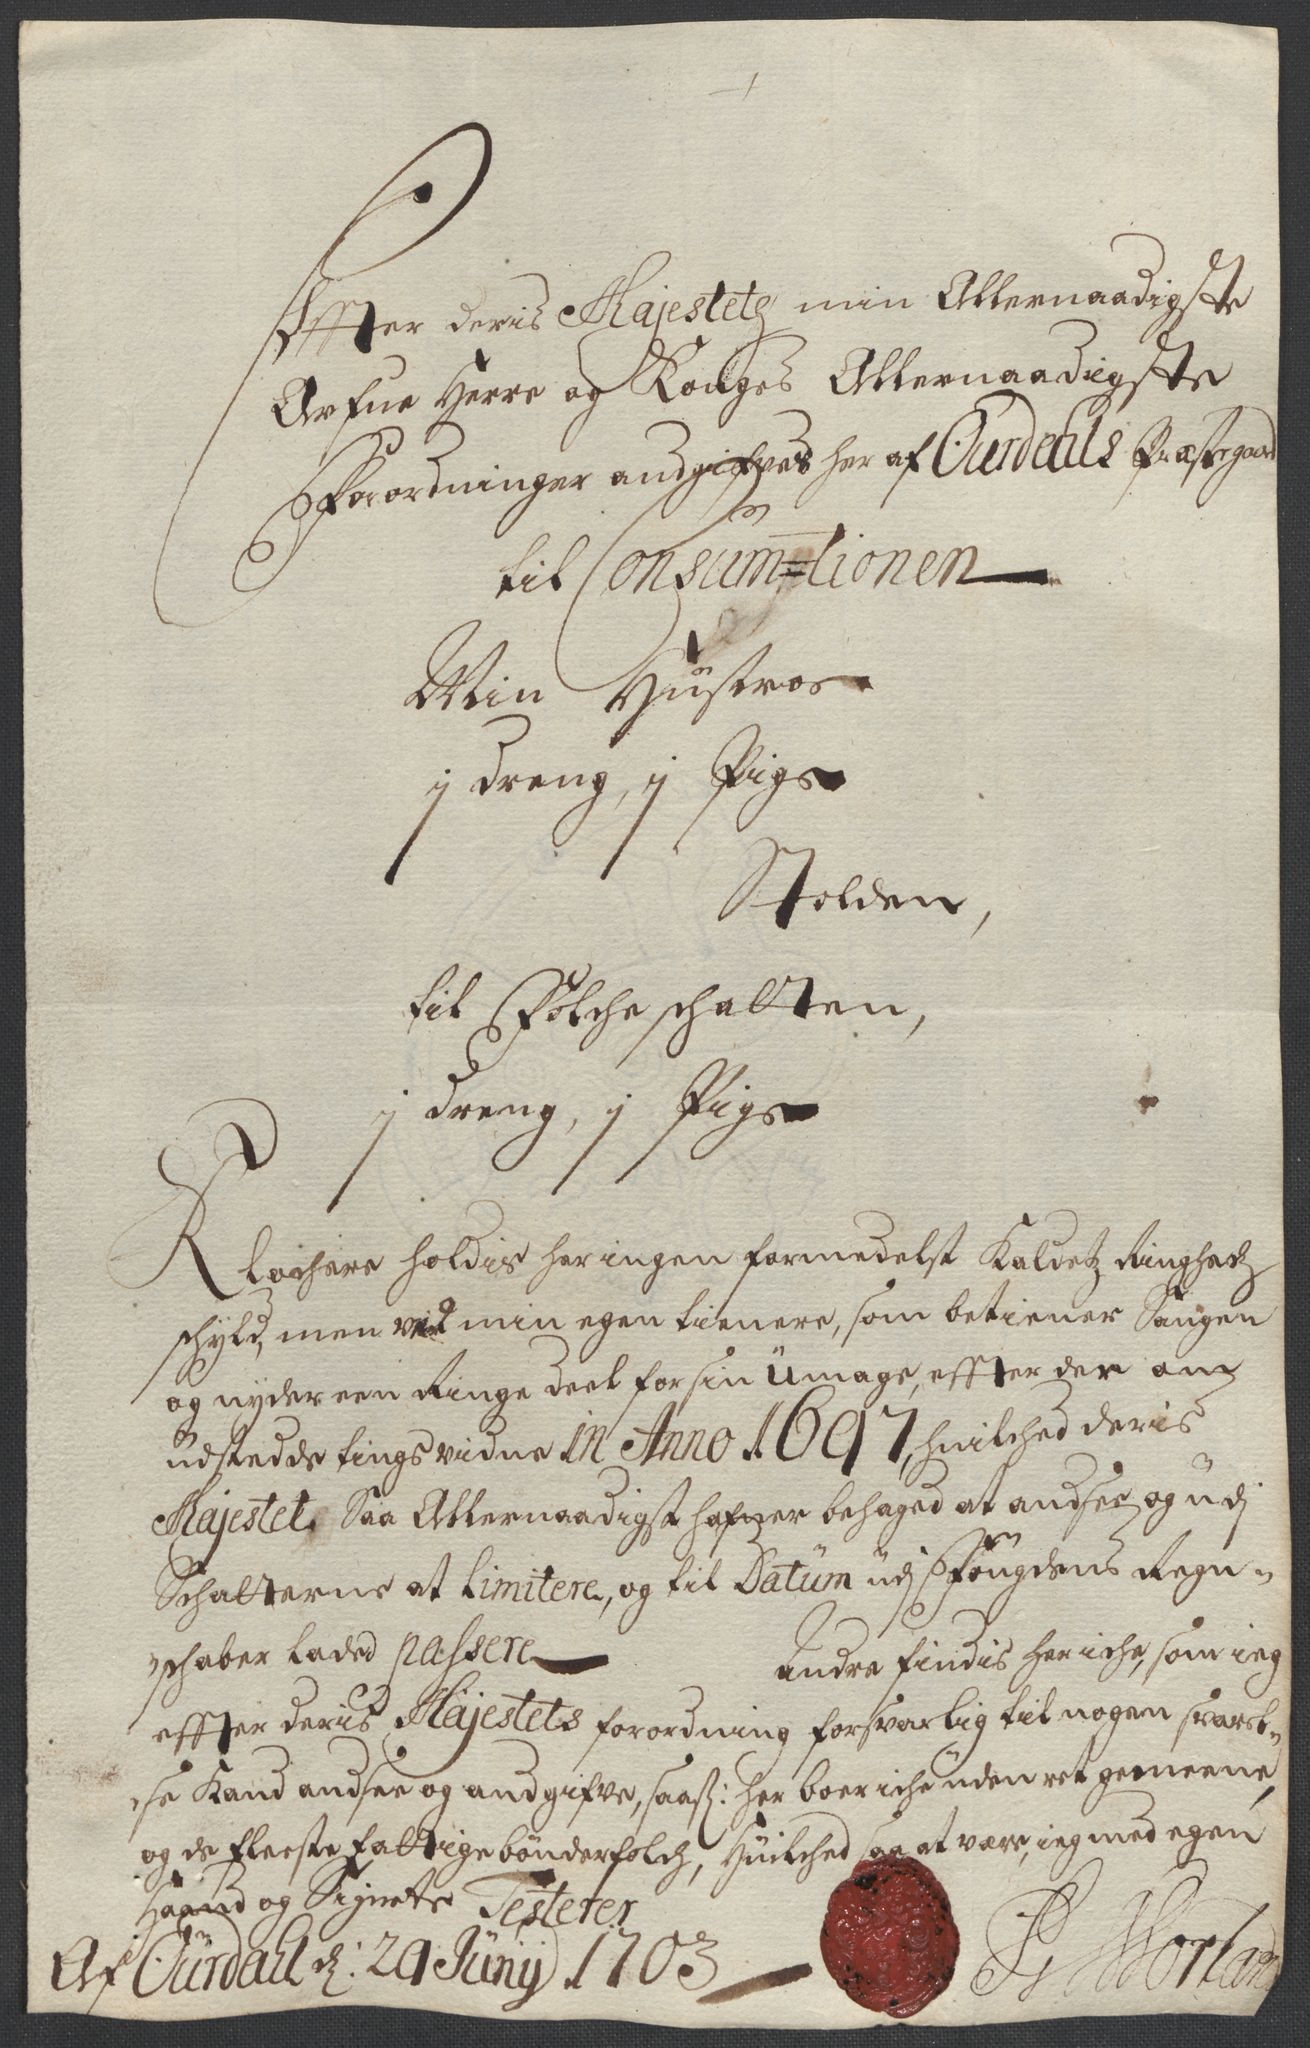 Effter deris Majestetz min Allernaadigste
Arfue Herre og Konges Allernaadigste
Forordninger andgifves her af Ourdals Præstegaard
til Consum=tionen
Min Hustroe
j dreng, j Pige
Stolden,
til Folcheschatten,
j dreng, j Pige
Klochere holdis her ingen formedelst Kaldetz Ringheds
schyld, men ved min egen tienere, som betiener Sangen
og nyder een Ringe deel for sin Umage, effter der om
udstedde tingsvidne in Anno 1697, huilched deris
Majestet. Saa Allernaadigst hafver behaged at andsee, og udj
Schatterne at limitere, og til Datum udj Fougdens Regn-
schaber laded passere
Andre findis her iche, som ieg
effter deris Majestets forordning forsvarlig til nogen svarel-
se kand andsee og andgifve, saas: her boer iche uden ret gemeene,
og de fleeste fattige bønderfolch, Huilched saa at være, ieg med egen
Haand og Signete Testerer
Af Ourdal d: 29 Junij 1703